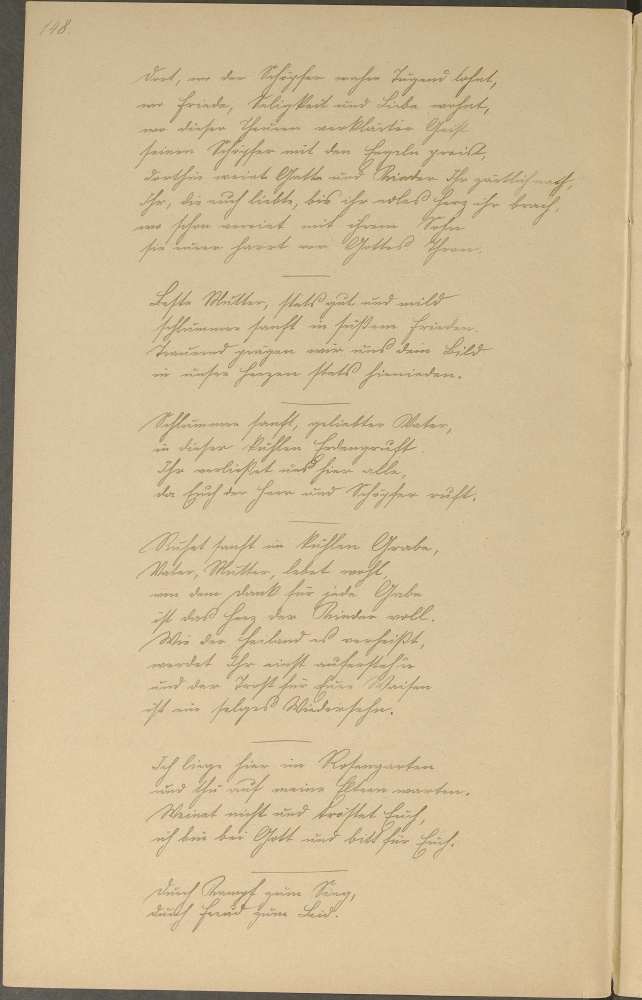 148.
Dort, wo der Schöpfer wahre Tugend lohnt,
wo Friede, Seligkeit und Liebe wohnt,
wo dieser Theuren verklärter Geist
seinen Schöpfer mit den Engeln preist,
dorthin weint Gatte und Kinder Ihr zärtlich nach,
Ihr, die euch liebte, bis ihr edles Herz ihr brach,
wo schon vereint mit ihrem Sohn
sie eurer harrt vor Gottes Thron.
Beste Mutter, stets gut und mild
schlummre sanft in süßem Frieden.
Trauernd prägen wir uns dein Bild
in unsre Herzen stets hienieden.
Schlummre sanft, geliebter Vater,
in dieser kühlen Erdengruft.
Ihr verließet uns hier alle,
da Euch der Herr und Schöpfer ruft.
Ruhet sanft im kühlen Grabe,
Vater, Mutter, lebet wohl,
von dem Dank für jede Gabe
ist das Herz der Kinder voll.
Wie der Heiland es verheißt,
werdet Ihr einst aufersteh'n
und der Trost für Eure Waisen
ist ein selges Wiedersehn.
Ich liege hier im Rosengarten
und thu auf meine Eltern warten.
Weinet nicht und tröstet Euch,
ich bin bei Gott und bitt für Euch.
Durch Kampf zum Sieg,
durch Freud zum Leid.